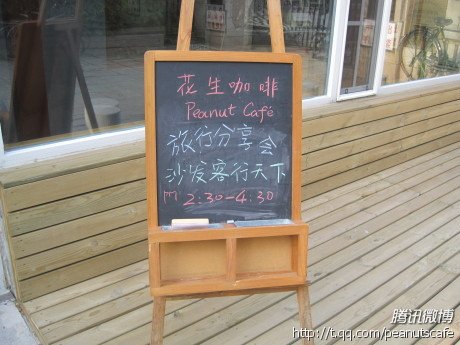 花生咖啡
Peanut Café
旅行分享会
沙发客行天下
2:30-4:30
腾讯微博
http://t.qq.com/peanutscafe